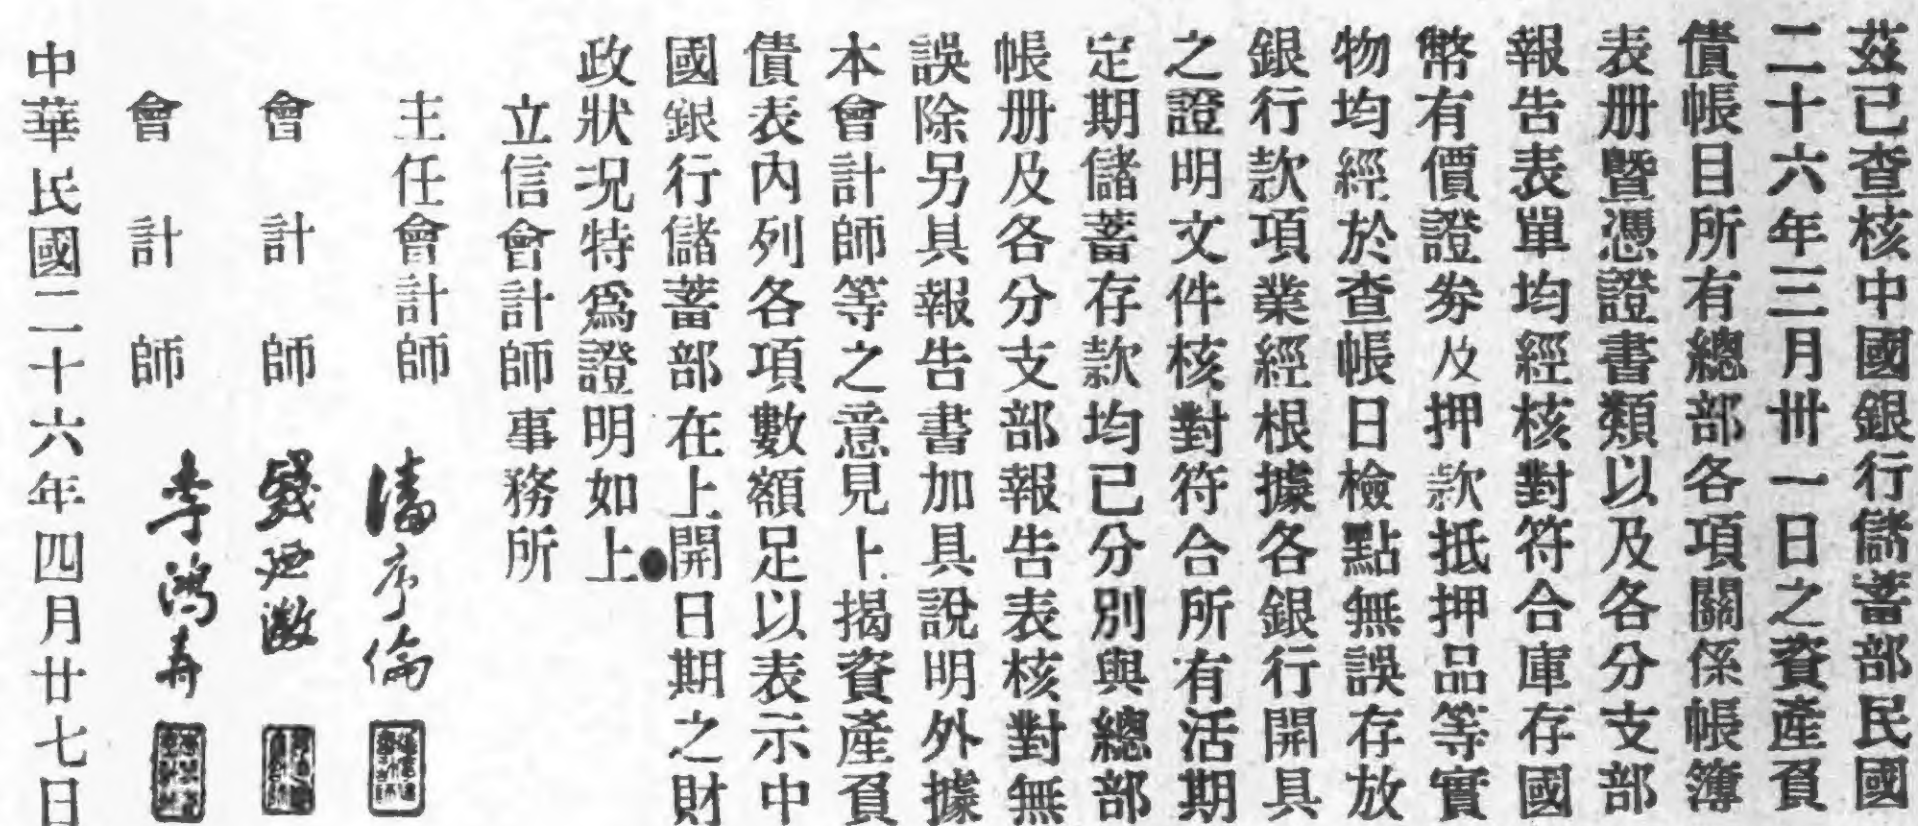 茲已查核中國銀行儲蓄部民國
二十六年三月卅一日之資產負
債帳目所有總部各項關係帳簿
表册暨憑證書類以及各分支部
報告表單均經核對符合庫存國
幣有價證券及押款抵押品等實
物均經於查帳日檢點無誤存放
銀行款項業經根據各銀行開具
之證明文件核對符合所有活期
定期儲蓄存款均已分別與總部
帳册及各分支部報告表核對無
誤除另具報告書加具說明外據
本會計師等之意見上揭資產負
債表內列各項數額足以表示中
國銀行儲蓄部在上開日期之財
政狀況特爲證明如上
立信會計師事務所
主任會計師 潘序倫
會計師 錢迺澂
會計師 李鴻壽
中華民國二十六年四月廿七日